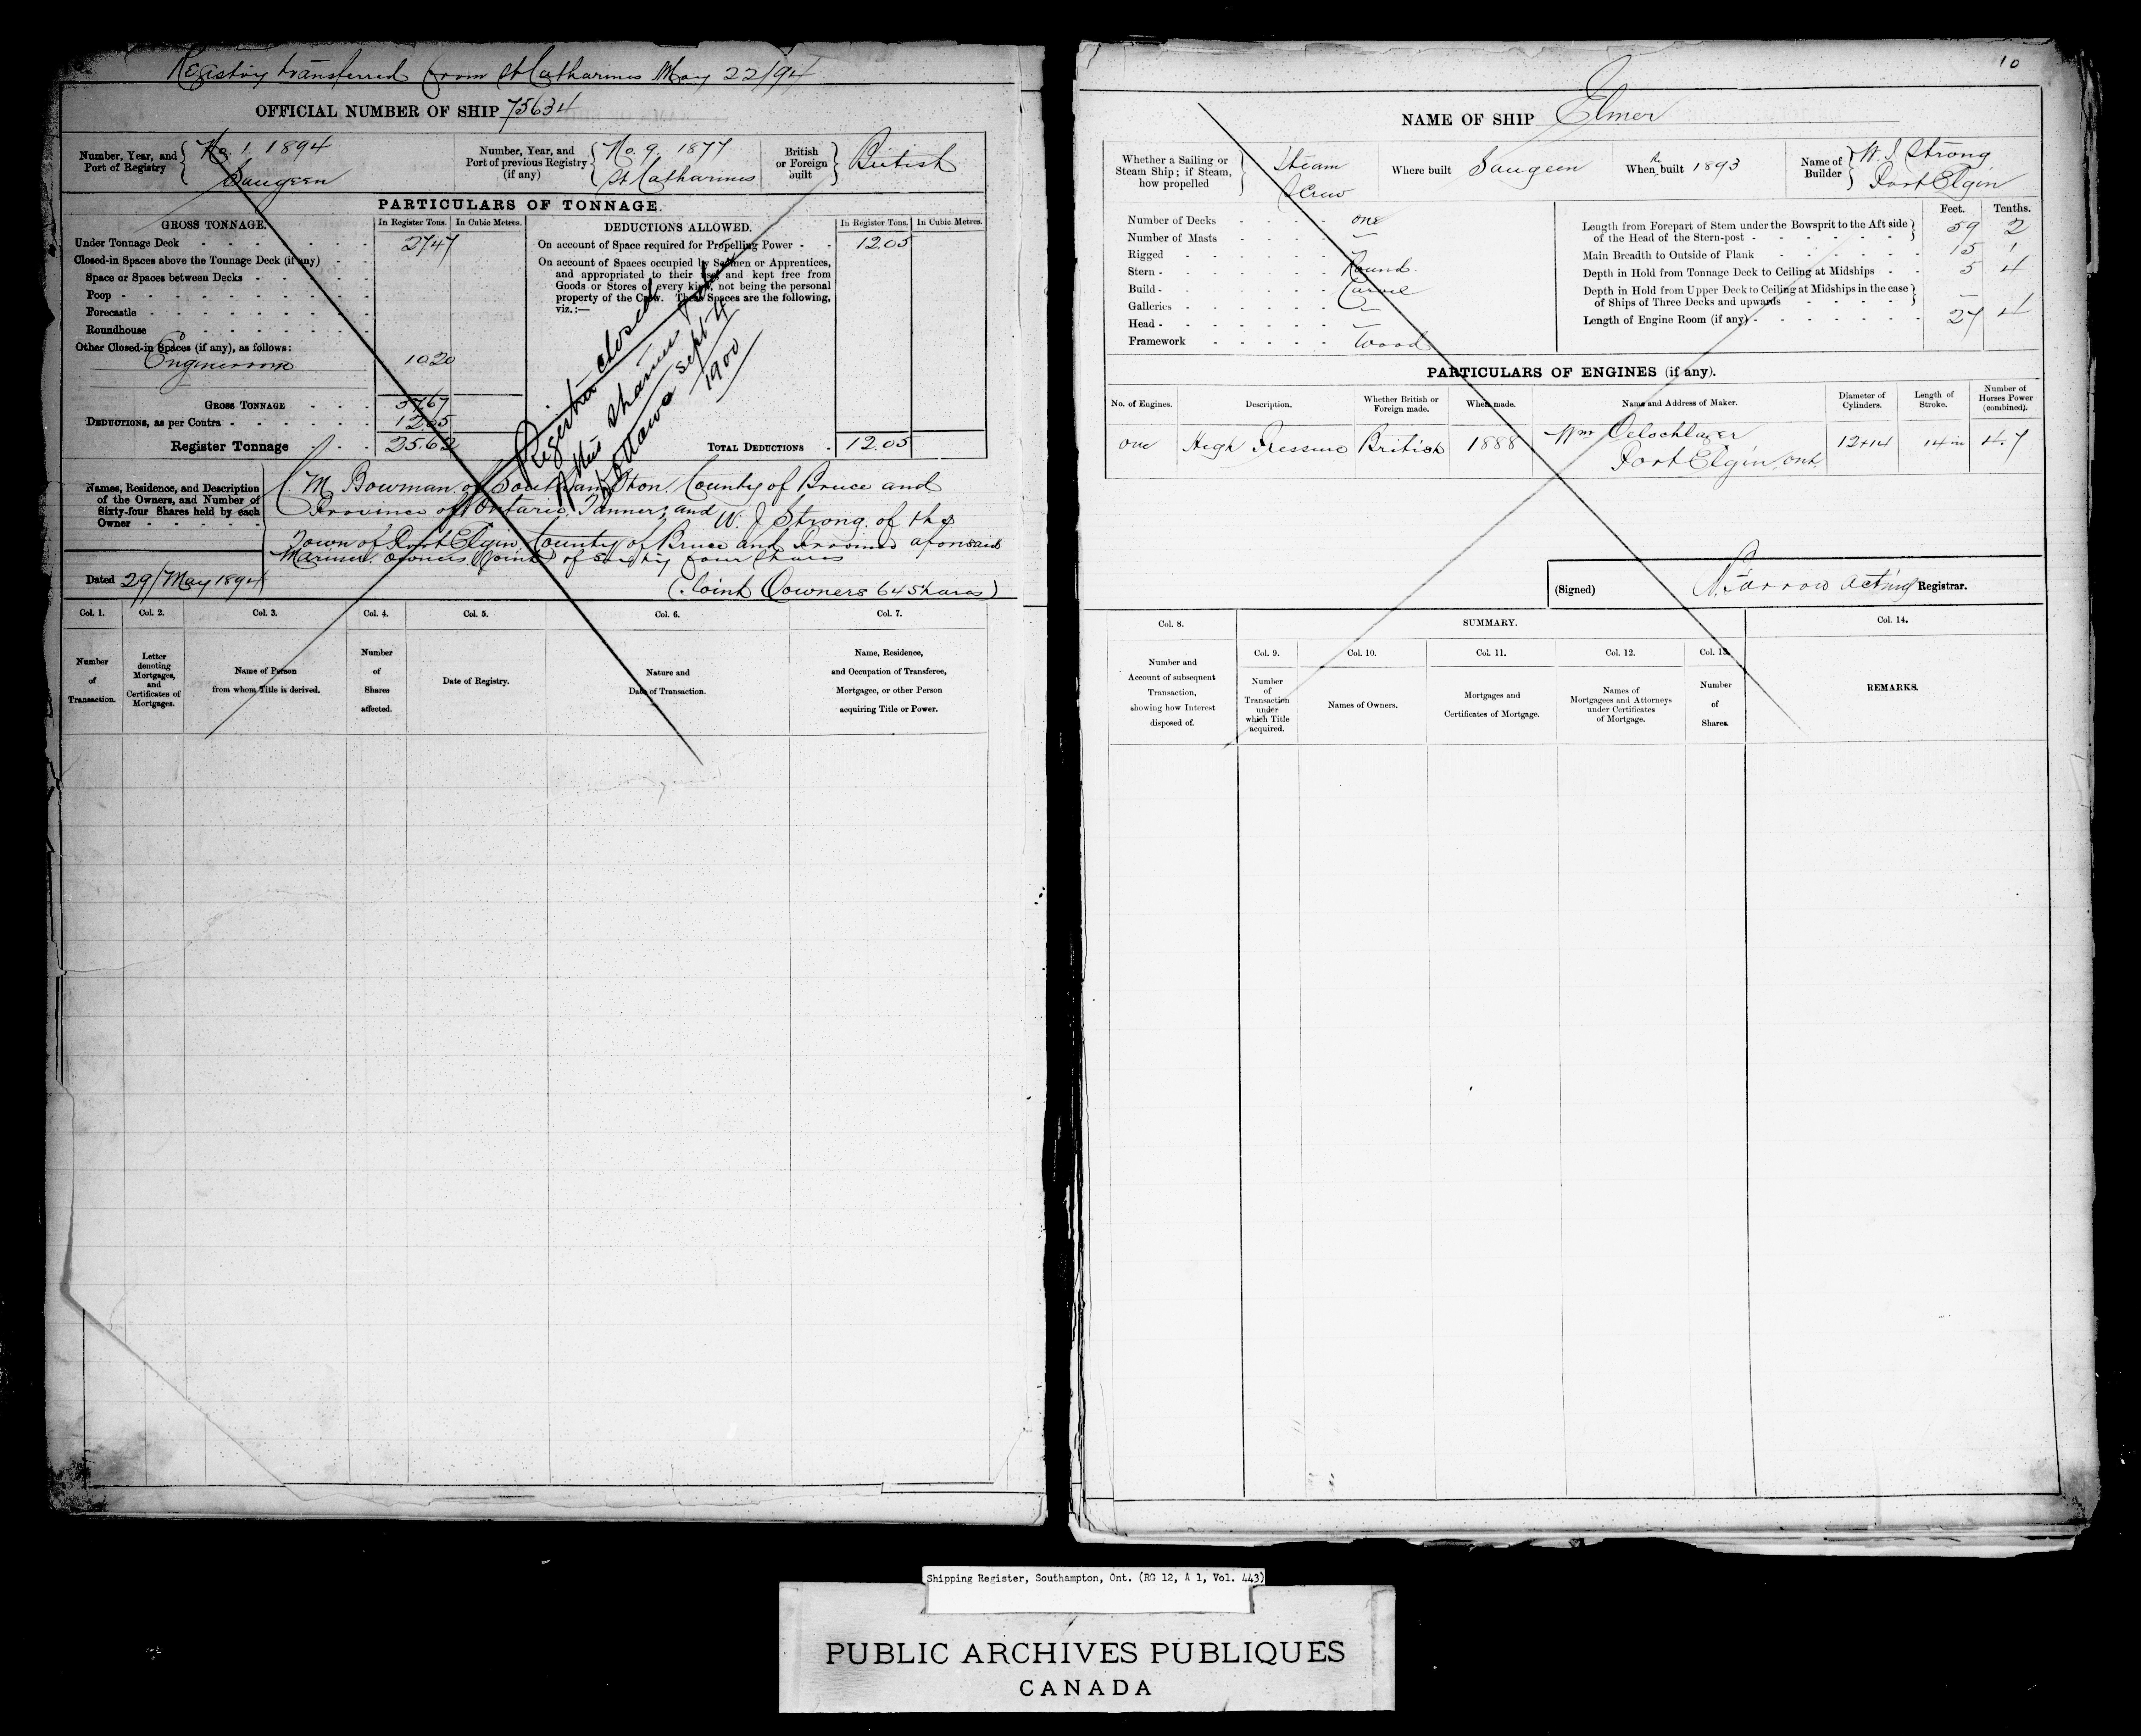 Registry transferred from St Catharines May 22/94
OFFICIAL NUMBER OF SHIP 75634
Number, Year, and Port of Registry { No. 1. 1894 Saugeen
Number, Year, and Port of previous Registry (if any) { No. 9. 1877 St Catharines
British or Foreign built } British
PARTICULARS OF TONNAGE.
GROSS TONNAGE. In Register Tons. In Cubic Metres.
Under Tonnage Deck 27.47
Closed-in Spaces above the Tonnage Deck (if any)
Space or Spaces between Decks
Poop
Forecastle
Roundhouse
Other Closed-in Spaces (if any), as follows:
Engineroom 10.20
GROSS TONNAGE 37.67
DEDUCTIONS, as per Contra 12.05
Register Tonnage 25.62
DEDUCTIONS ALLOWED. In Register Tons. In Cubic Metres.
On account of Space required for Propelling Power 12.05
On account of Spaces occupied by Seamen or Apprentices, and appropriated to their use, and kept free from Goods or Stores of every kind, not being the personal property of the Crew. These Spaces are the following, viz.:—
TOTAL DEDUCTIONS 12.05
Register closed
Sept 4
Ottawa
1900
Names, Residence, and Description of the Owners, and Number of Sixty-four Shares held by each Owner
C. M. Bowman of Southampton County of Bruce and
Province of Ontario, Tanner; and W. J. Strong of the
Town of Port Elgin County of Bruce and Province aforesaid
Mariner owners (joint) of sixty four shares
Dated 29/May 1894
(Joint Oowners 64 Shares)
Col. 1. Col. 2. Col. 3. Col. 4. Col. 5. Col. 6. Col. 7.
Number of Transaction.
Letter denoting Mortgages, and Certificates of Mortgages.
Name of Person from whom Title is derived.
Number of Shares affected.
Date of Registry.
Nature and Date of Transaction.
Name, Residence, and Occupation of Transferee, Mortgagee, or other Person acquiring Title or Power.
10
NAME OF SHIP Elmer
Whether a Sailing or Steam Ship; if Steam, how propelled } Steam Screw
Where built Saugeen
When Re built 1893
Name of Builder } W. J Strong Port Elgin
Number of Decks one
Number of Masts —
Rigged —
Stern Round
Build Carvel
Galleries —
Head —
Framework Wood
Feet. Tenths.
Length from Forepart of Stem under the Bowsprit to the Aft side of the Head of the Stern-post 59 2
Main Breadth to Outside of Plank 15 1
Depth in Hold from Tonnage Deck to Ceiling at Midships 5 4
Depth in Hold from Upper Deck to Ceiling at Midships in the case of Ships of Three Decks and upwards —
Length of Engine Room (if any) 27 4
PARTICULARS OF ENGINES (if any).
No. of Engines. Description. Whether British or Foreign made. When made. Name and Address of Maker. Diameter of Cylinders. Length of Stroke. Number of Horses Power (combined).
one High Pressure British 1888 Wm Oelschlager Port Elgin Ont. 12+14 14 in 4.7
(Signed) N. Farrow Acting Registrar.
Col. 8. SUMMARY. Col. 14.
Col. 9. Col. 10. Col. 11. Col. 12. Col. 13.
Number and Account of subsequent Transaction, showing how Interest disposed of.
Number of Transaction under which Title acquired.
Names of Owners.
Mortgages and Certificates of Mortgage.
Names of Mortgagees and Attorneys under Certificates of Mortgage.
Number of Shares.
REMARKS.
Shipping Register, Southampton, Ont. (RG 12, A 1, Vol. 443)
PUBLIC ARCHIVES PUBLIQUES
CANADA